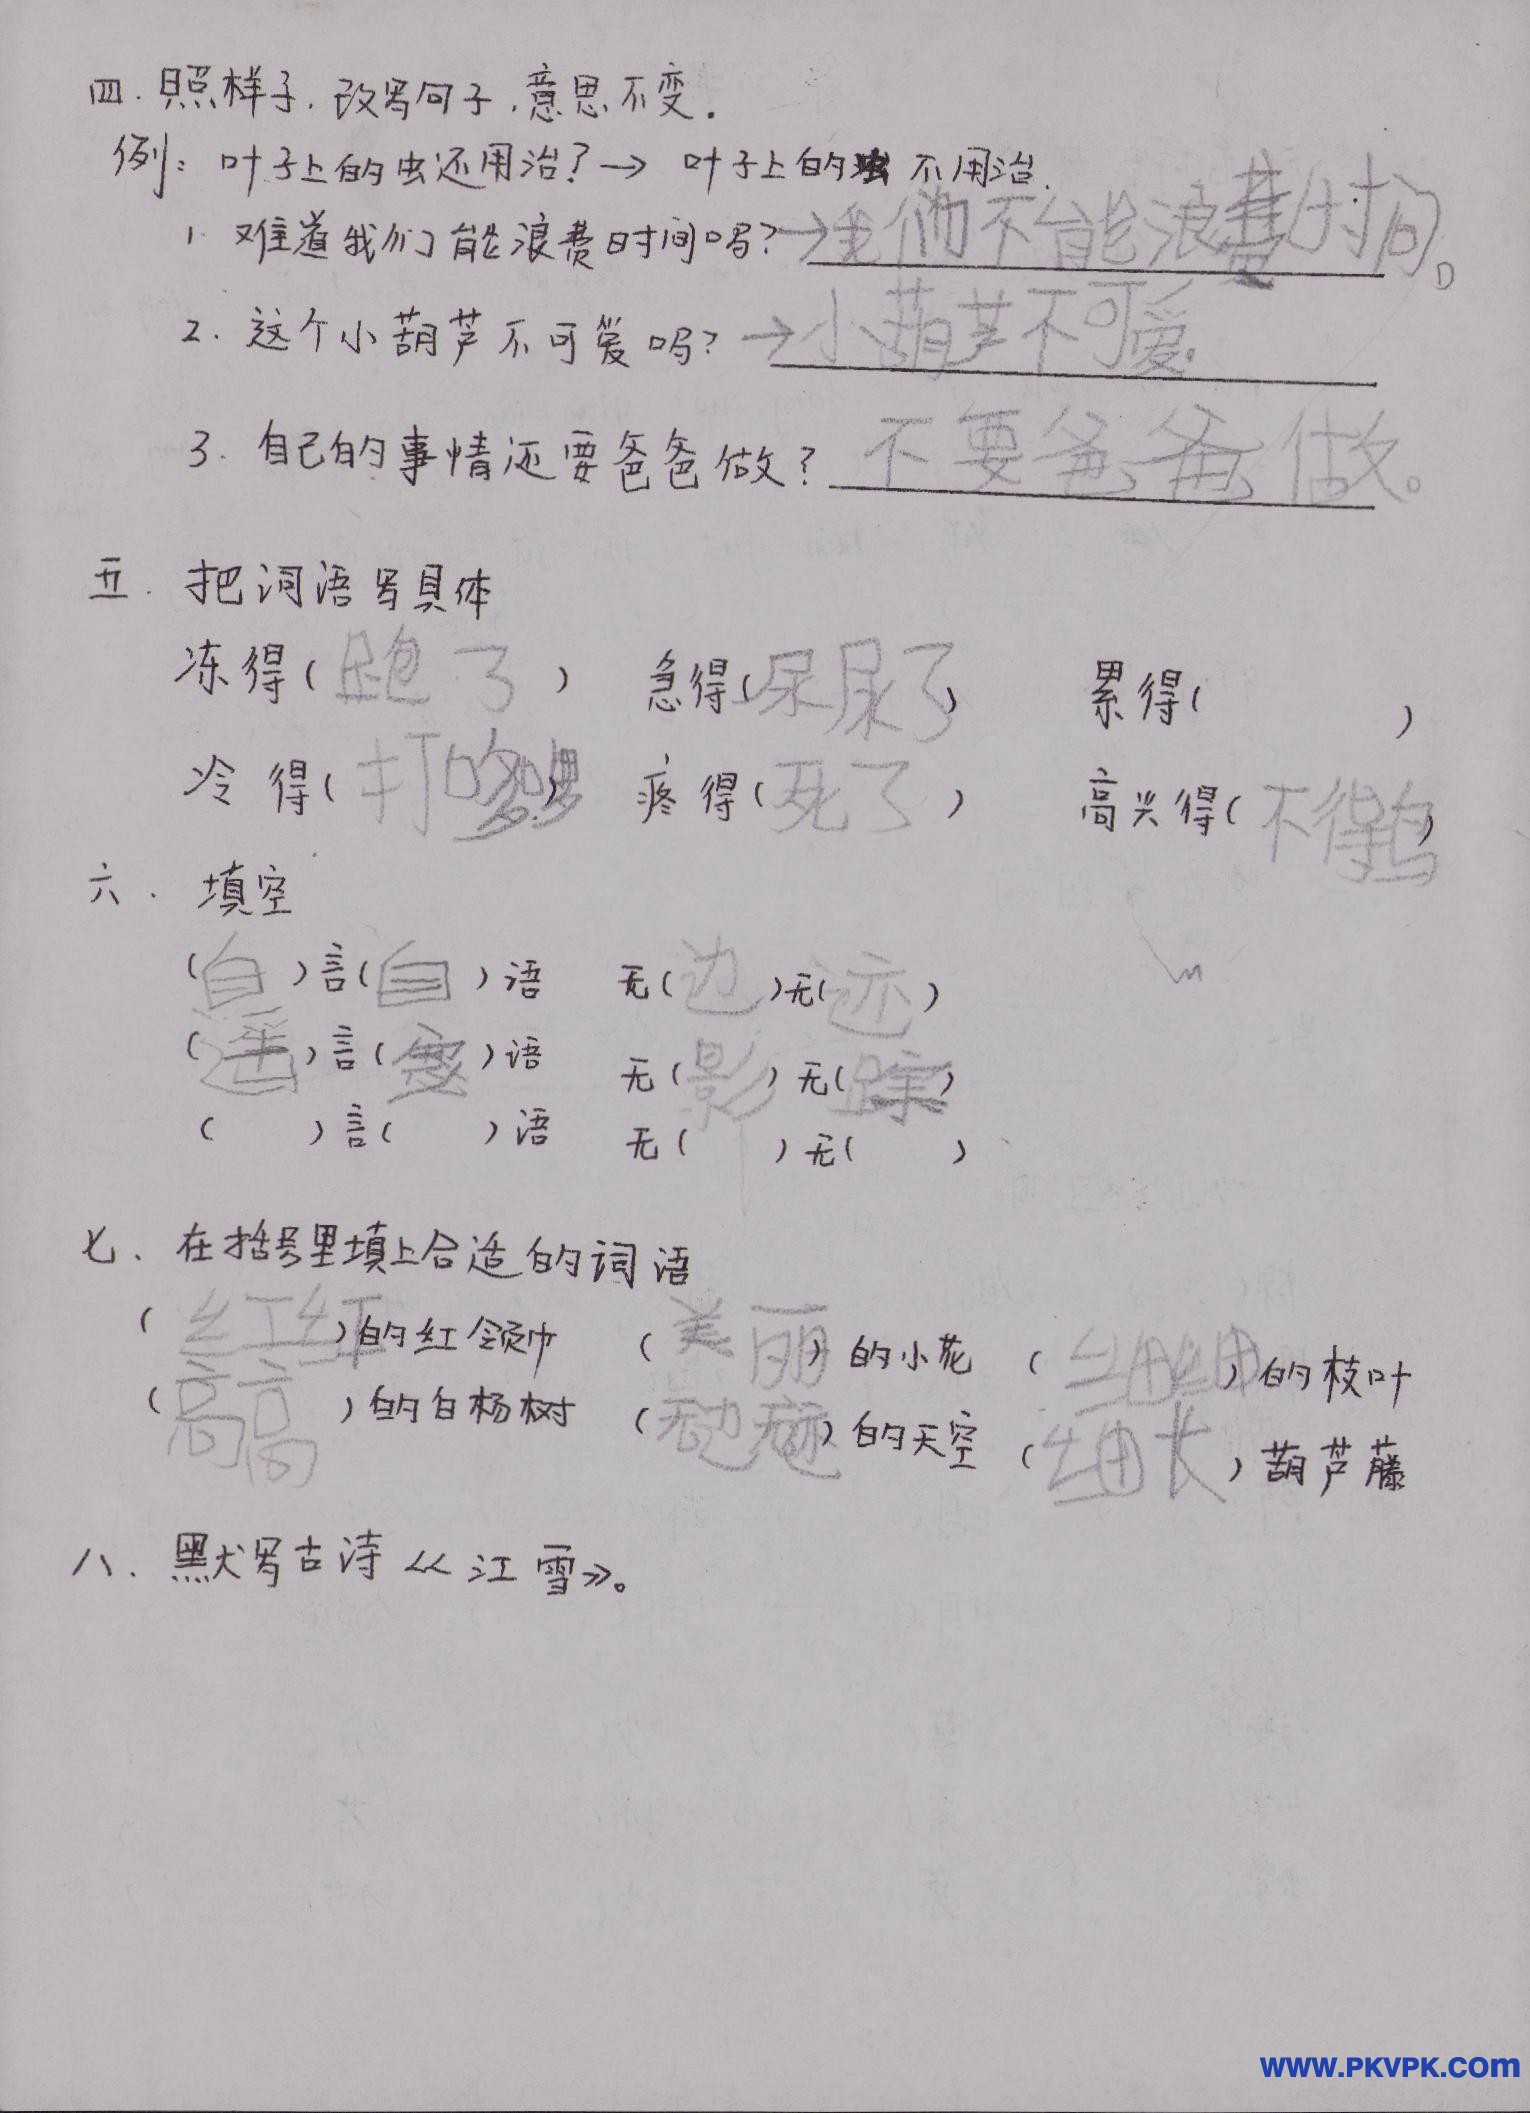 四. 照样子, 改写句子, 意思不变.
例: 叶子上的虫还用治? → 叶子上的虫不用治.
1. 难道我们能浪费时间吗? → 我们不能浪费时间。
2. 这个小葫芦不可爱吗? → 小葫芦不可爱。
3. 自己的事情还要爸爸做? 不要爸爸做。
五. 把词语写具体
冻得(跑了) 急得(尿尿了) 累得( )
冷得(打哆嗦) 疼得(死了) 高兴得(不得)
六. 填空
(自)言(自)语 无(边)无(迹)
( )言( )语 无(影)无(踪)
( )言( )语 无( )无( )
七. 在括号里填上合适的词语
(红红)的红领巾 (美丽)的小花 (细细)的枝叶
(高高)的白杨树 (无边无迹)的天空 (细长)葫芦藤
八. 默写古诗《江雪》。
WWW.PKVPK.COM